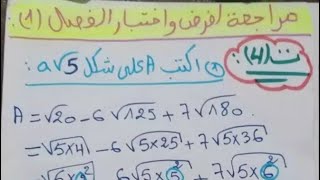 مراجعة لفرض واختبار الفصل (1)
ت(4): ① اكتب A على شكل a√5:
A = √20 - 6√125 + 7√180
= √5×4 - 6√5×25 + 7√5×36
= √5×2² - 6√5×5² + 7√5×6²